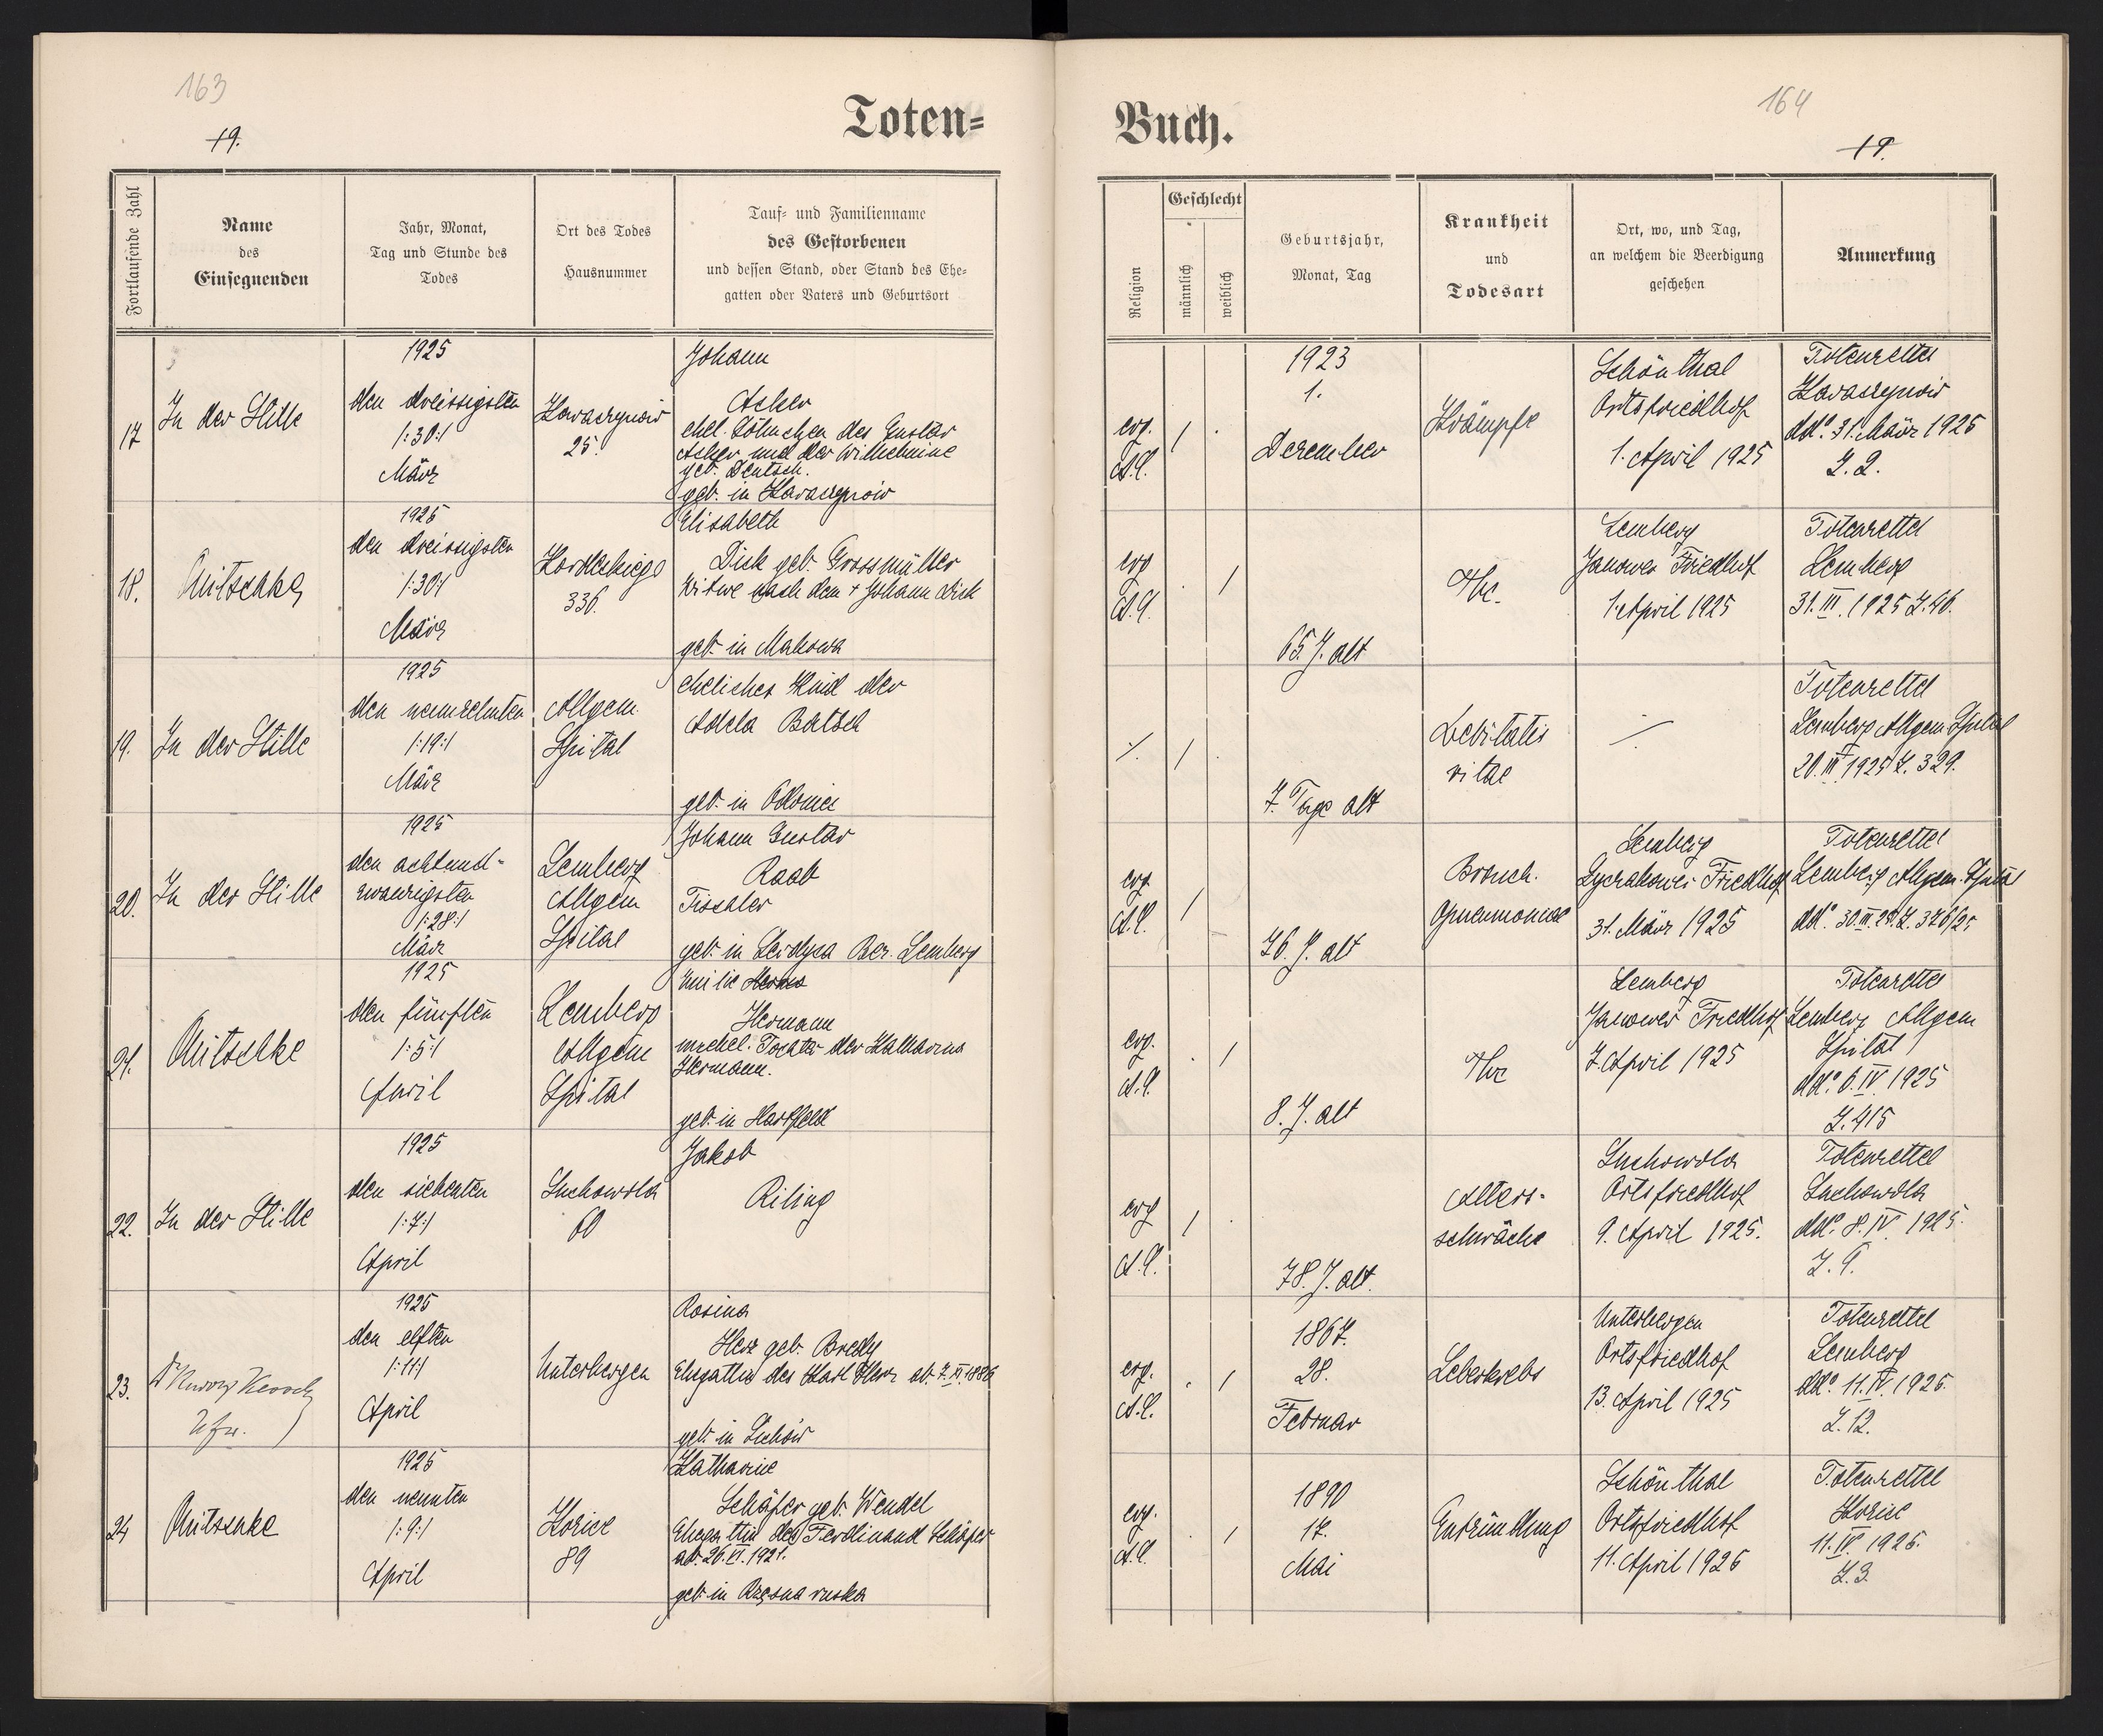 163
19.
Toten=
Fortlaufende Zahl
Name
des
Einsegnenden
Jahr, Monat,
Tag und Stunde des
Todes
Ort des Todes
Hausnummer
Tauf= und Familienname
des Gestorbenen
und dessen Stand, oder Stand des Ehe=
gatten oder Vaters und Geburtsort
17
In der Stille
1925
den dreissigsten
/:30:/
März
25.
Johann
Asker
ehel. Söhnchen des Gustav
Asker und der Wilhelmine
geb. Deutsch.
geb. in
18.
Mitschke
1925
den dreissigsten
/:30:/
März
336.
Elisabeth
Dick geb. Grossmüller
Witwe nach dem + Johann Dick
geb. in Makowa
19.
In der Stille
1925
den neunzehnten
/:19:/
März
Allgem.
Spital
eheliches Kind der
Adela Batsch
geb. in
20.
In der Stille
1925
den achtund-
zwanzigsten
/:28:/
März
Lemberg
Allgem
Spital
Johann Gustav
Raab
Tischler
geb. in Bez. Lemberg
21.
Mitschke
1925
den fünften
/:5:/
April
Lemberg
Allgem
Spital
Emilie
Hermann
unehel. Tochter der Katharina
Hermann.
geb. in Hartfeld
22.
In der Stille
1925
den siebenten
/:7:/
April
Suchowola
60
Jakob
Riling
23.
1925
den elften
/:11:/
April
Unterbergen
Rosina
Herz geb. Bredy
Ehegattin des Karl Herz ab. 7.XI.1886
geb. in
24
Mitschke
1925
den neunten
/:9:/
April
Zorice
89
Katharine
Schäfer geb. Wendel
Ehegattin des Ferdinand Schäfer
ab. 26.VI.1921.
geb. in Rzęsna ruska
164
19.
Buch.
Religion
Geschlecht
männlich
weiblich
Geburtsjahr,
Monat, Tag
Krankheit
und
Todesart
Ort, wo, und Tag,
an welchem die Beerdigung
geschehen
Anmerkung
evg.
A.C.
/ .
1923
1.
Dezember
Krämpfe
Schönthal
Ortsfriedhof
1. April 1925
Totenzettel
ddo. 31. März 1925
Z. 2.
evg
A.C.
. /
65 J. alt
Tbc.
Lemberg
Janower Friedhof
1. April 1925
Totenzettel
Lemberg
31.III.1925 Z. 46.
./.
/ .
7. Tage alt
Debilitatis
vitae
./.
Totenzettel
Lemberg Allgem. Spital
20.III.1925 Z. 329.
evg.
A.C.
/
76. J. alt
Bronch.
Pneumoniae
Lemberg
Lyczakower Friedhof
31. März 1925
Totenzettel
Lemberg Allgem. Spital
ddo. 30.III.25. Z. 376/25
evg.
A.C.
. /
8. J. alt
Tbc
Lemberg
Janower Friedhof
7. April 1925
Totenzettel
Lemberg Allgem
Spital
ddo. 6.IV.1925
Z. 415
evg
A.C.
/ .
78. J. alt.
Alters-
schwäche
Suchowola
Ortsfriedhof
9. April 1925.
Totenzettel
Suchowola
ddo. 8.IV.1925.
Z. 9.
evg.
A.C.
. /
1867.
28.
Februar
Leberkrebs
Unterbergen
Ortsfriedhof
13. April 1925
Totenzettel
Lemberg
ddo. 11.IV.1925.
Z. 12.
evg.
A.C.
. /
1890
17.
Mai
Entzündung
Schönthal
Ortsfriedhof
11. April 1925
Totenzettel
11.IV.1925.
Z. 3.